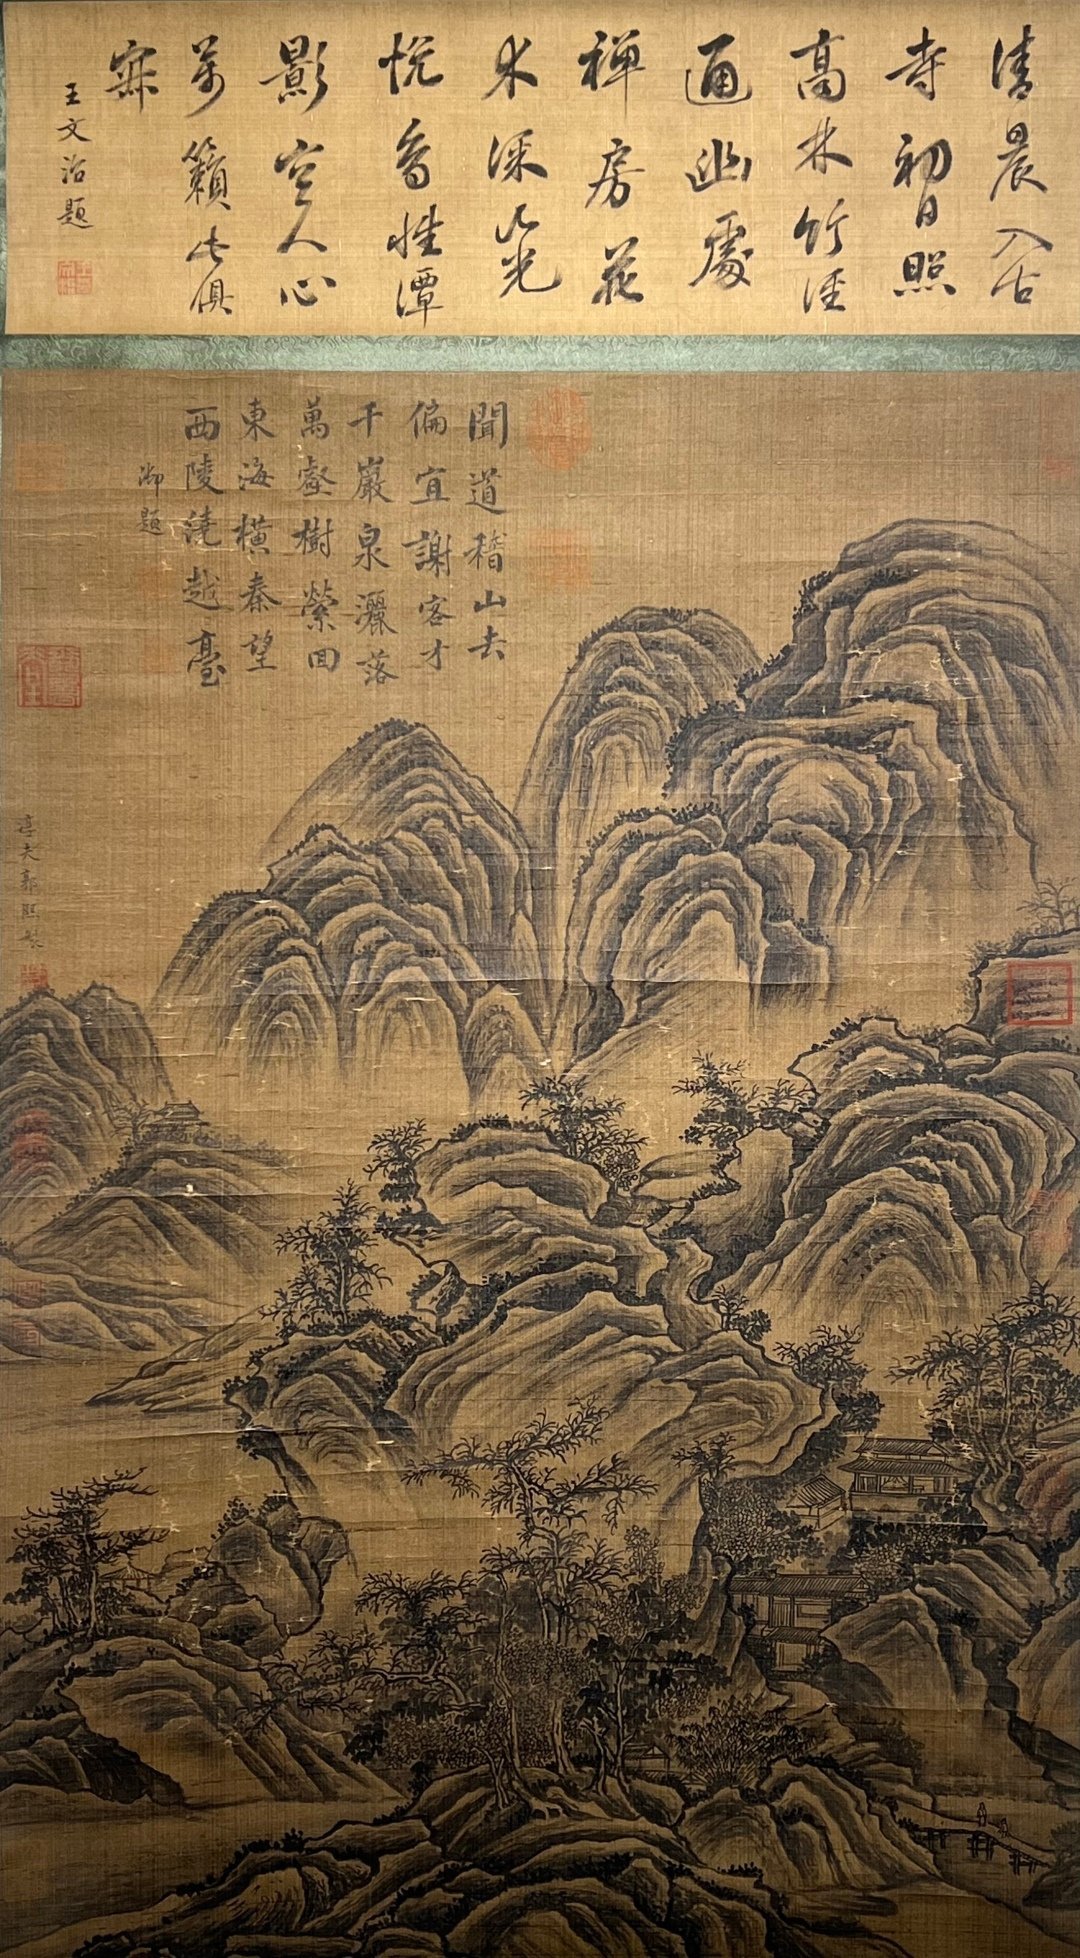 清晨入古
寺初日照
高林竹徑
通幽處
禅房花
木深山光
悅鳥性潭
影空人心
萬籟此俱
寂
王文治題
聞道稽山去
偏宜謝客才
千巖泉灑落
萬壑樹縈回
東海橫秦望
西陵繞越臺
御題
淳夫郭熙製